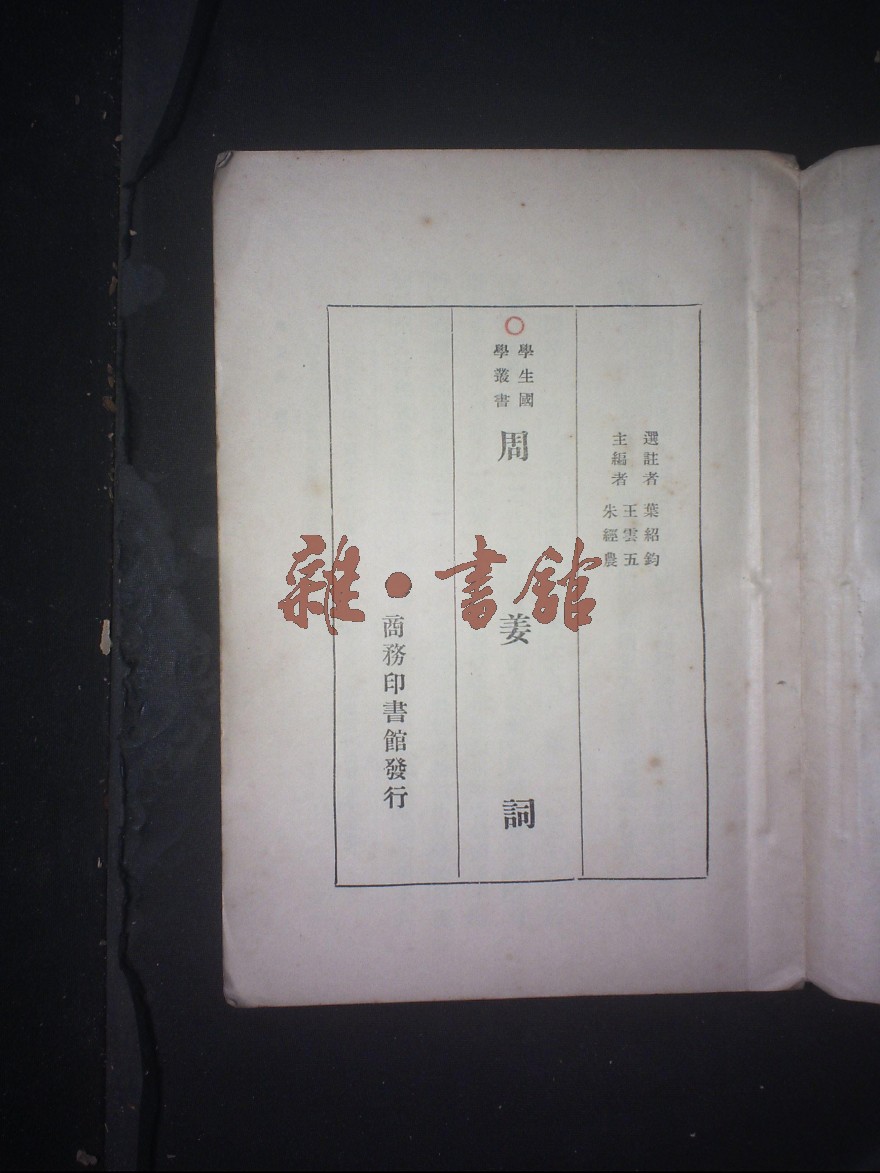 選註者 葉紹鈞
主編者 王雲五
朱經農
學生國
學叢書
周姜詞
商務印書館發行
雜●書館